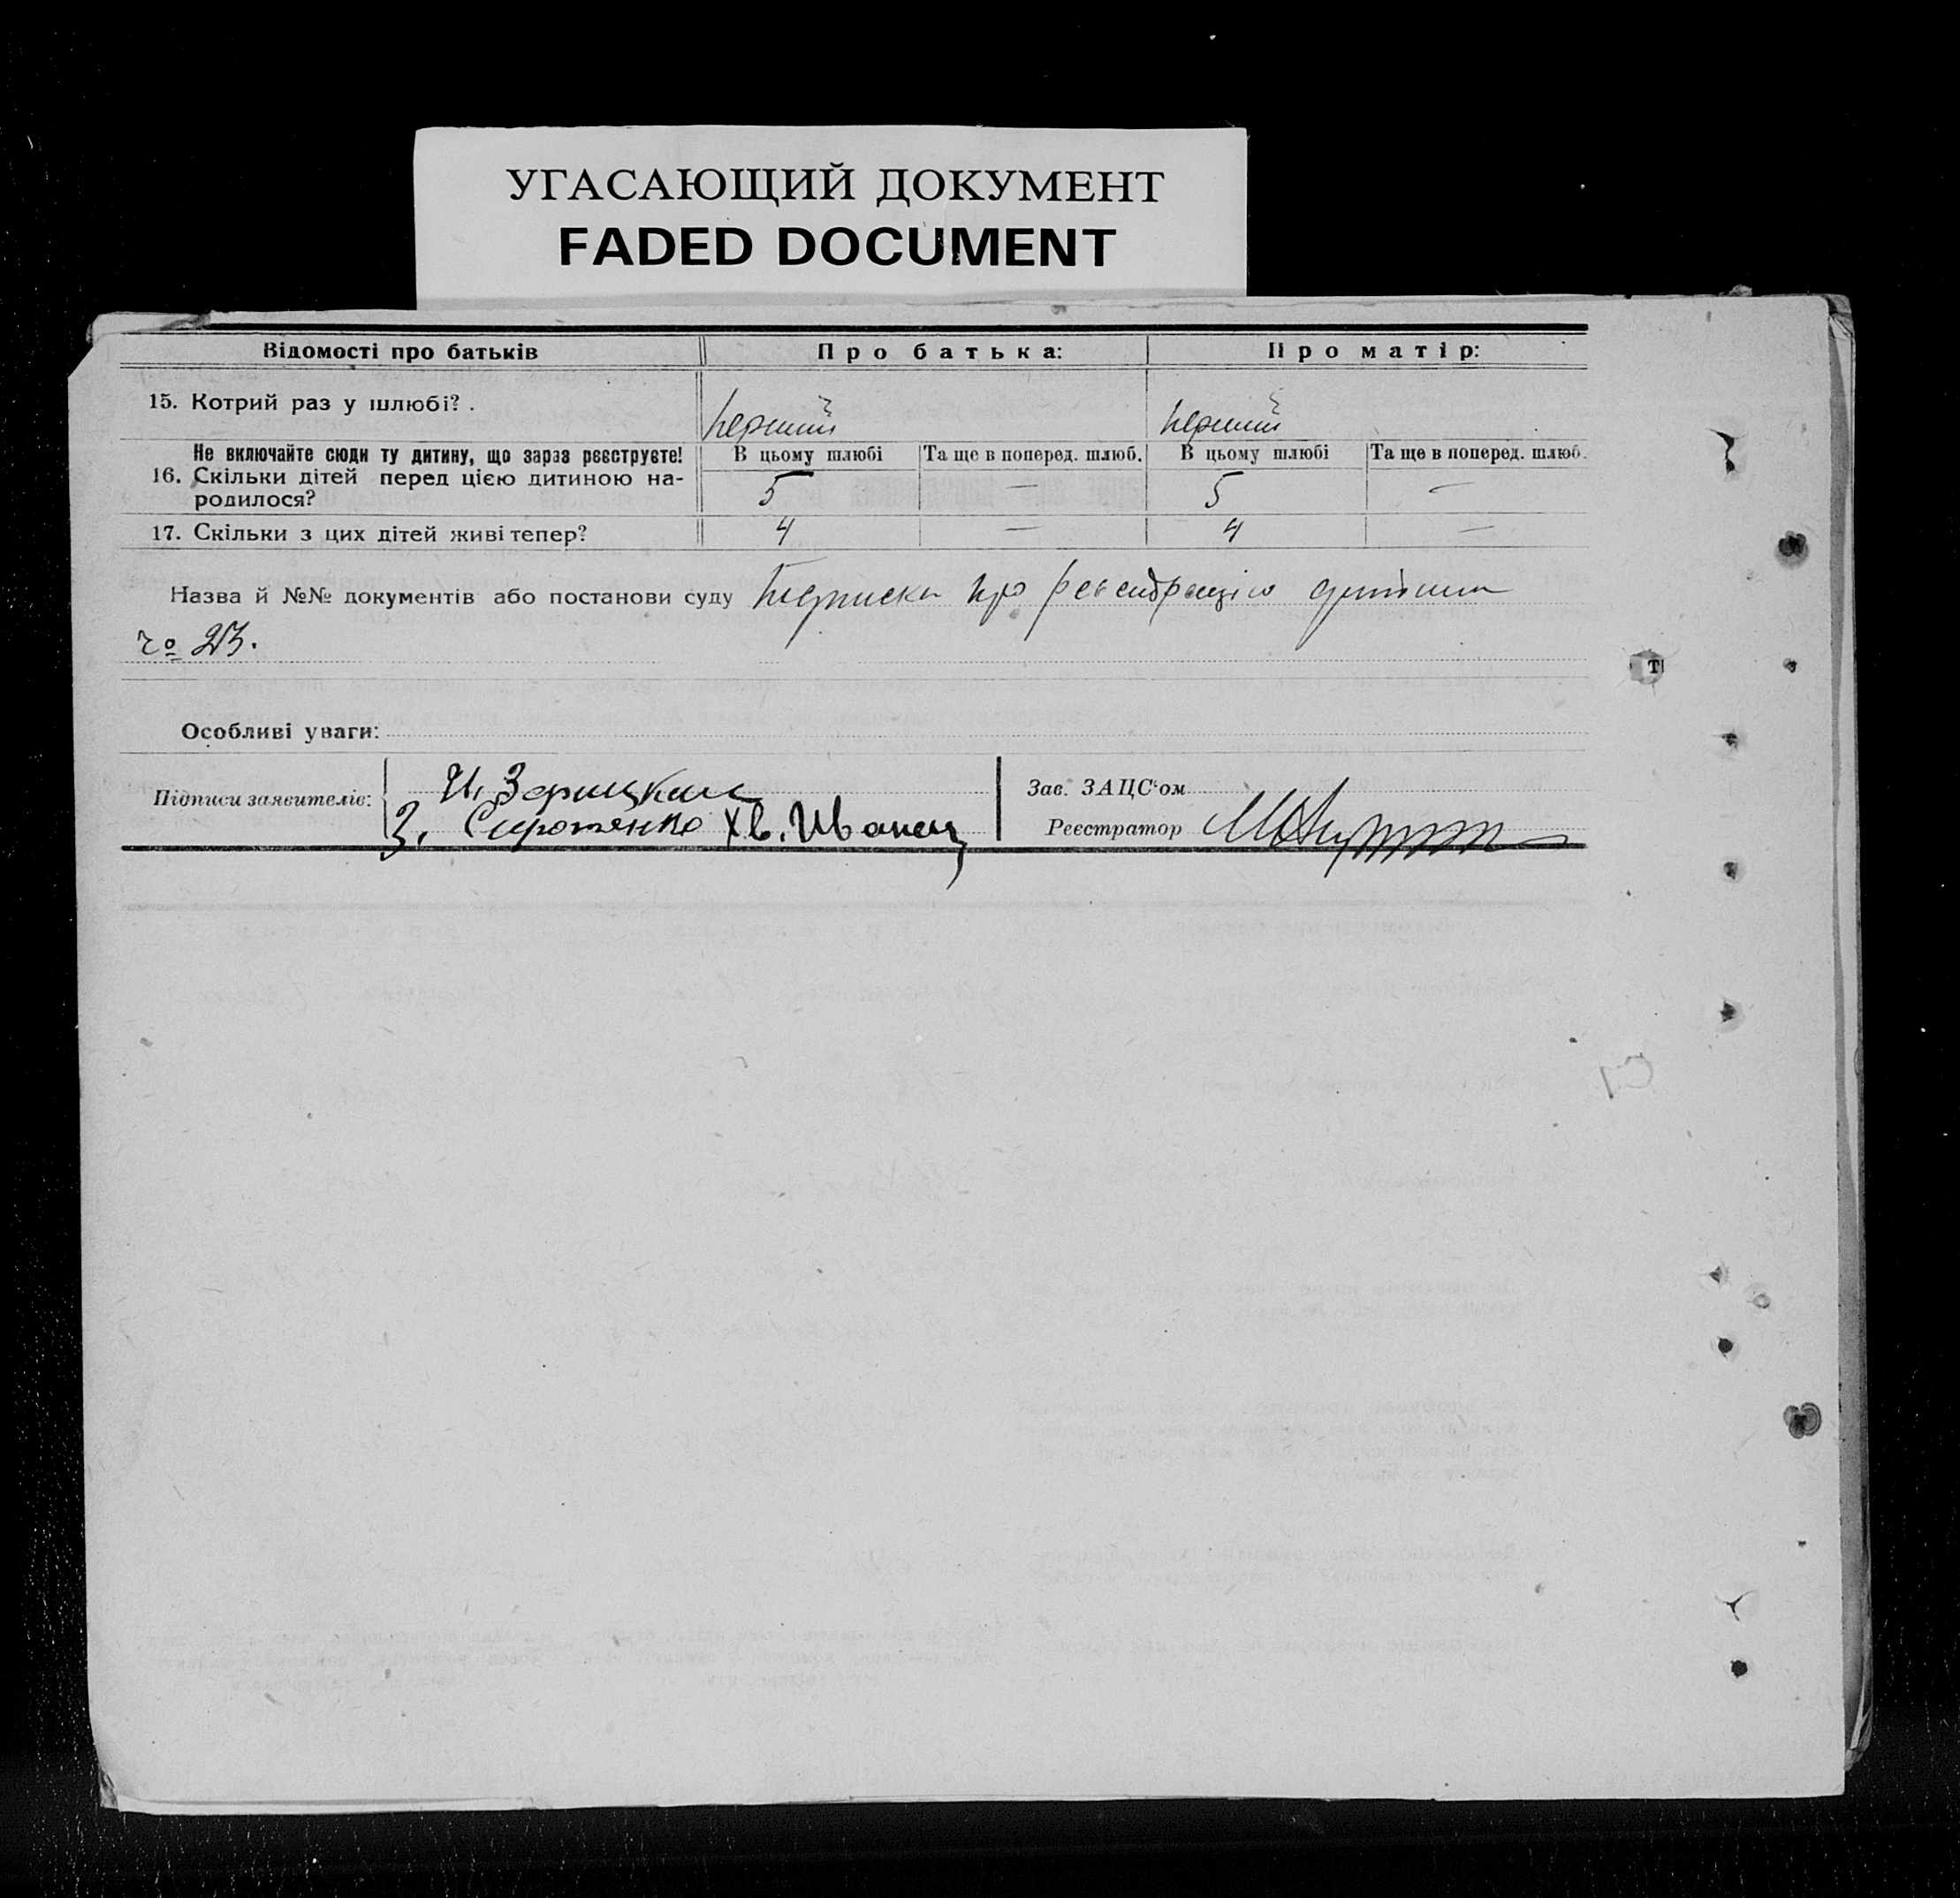 УГАСАЮЩИЙ ДОКУМЕНТ
FADED DOCUMENT
Відомості про батьків Про батька: Про матір:
15. Котрий раз у шлюбі? . перший перший
Не включайте сюди ту дитину, що зараз реєструєте! В цьому шлюбі Та ще в поперед. шлюб. В цьому шлюбі Та ще в поперед. шлюб.
16. Скільки дітей перед цією дитиною на-
родилося? 5 — 5 —
17. Скільки з цих дітей живі тепер? 4 — 4 —
Назва й №№ документів або постанови суду про реєстрацію дитини
Особливі уваги:
Підписи заявителів: И. Зарицкий
З. Сироженко Хв. Иванец
Зав. ЗАЦС'ом
Реєстратор